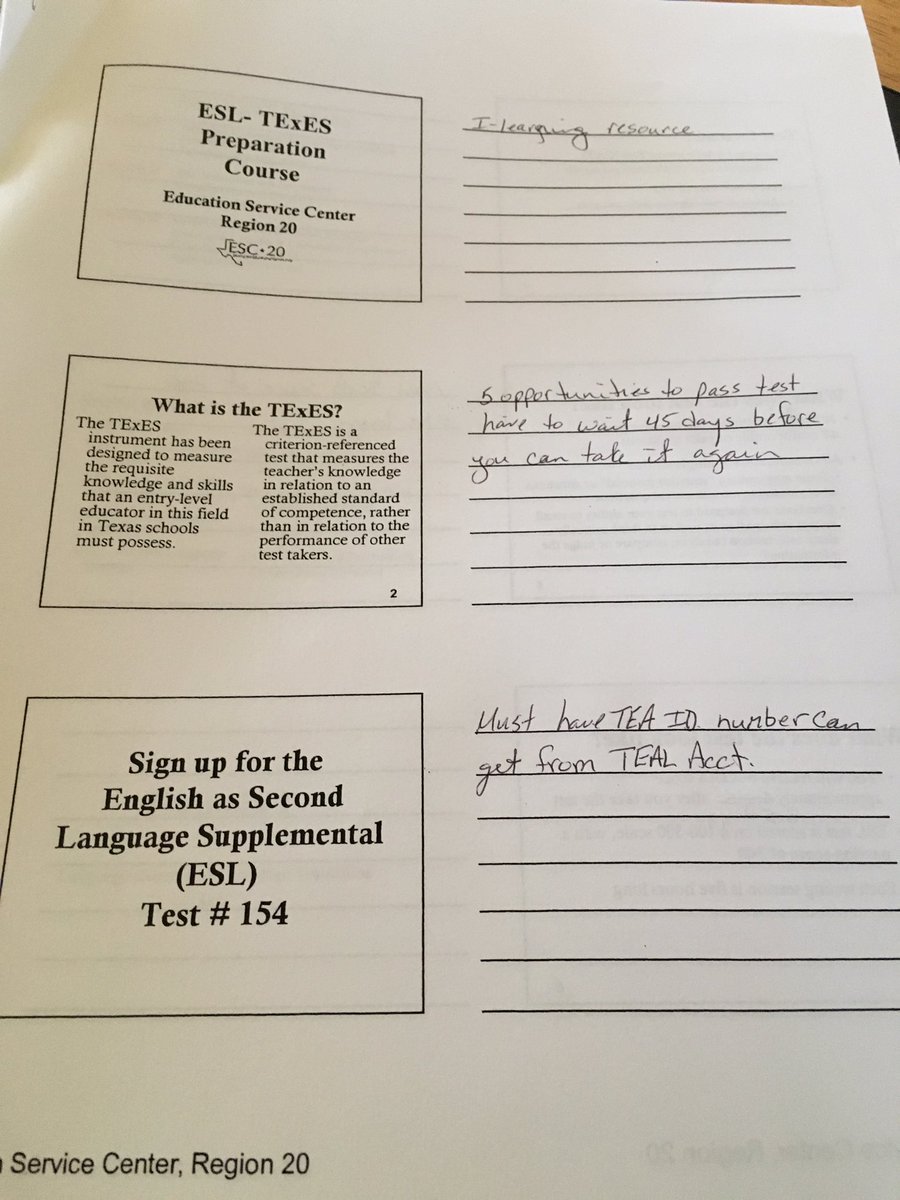 ESL- TExES
Preparation
Course
Education Service Center
Region 20
ESC·20
I-learning resource
What is the TExES?
The TExES
instrument has been
designed to measure
the requisite
knowledge and skills
that an entry-level
educator in this field
in Texas schools
must possess.
The TExES is a
criterion-referenced
test that measures the
teacher's knowledge
in relation to an
established standard
of competence, rather
than in relation to the
performance of other
test takers.
2
5 opportunities to pass test
have to wait 45 days before
you can take it again
Sign up for the
English as Second
Language Supplemental
(ESL)
Test # 154
Must have TEA ID number can
get from TEAL Acct.
Service Center, Region 20